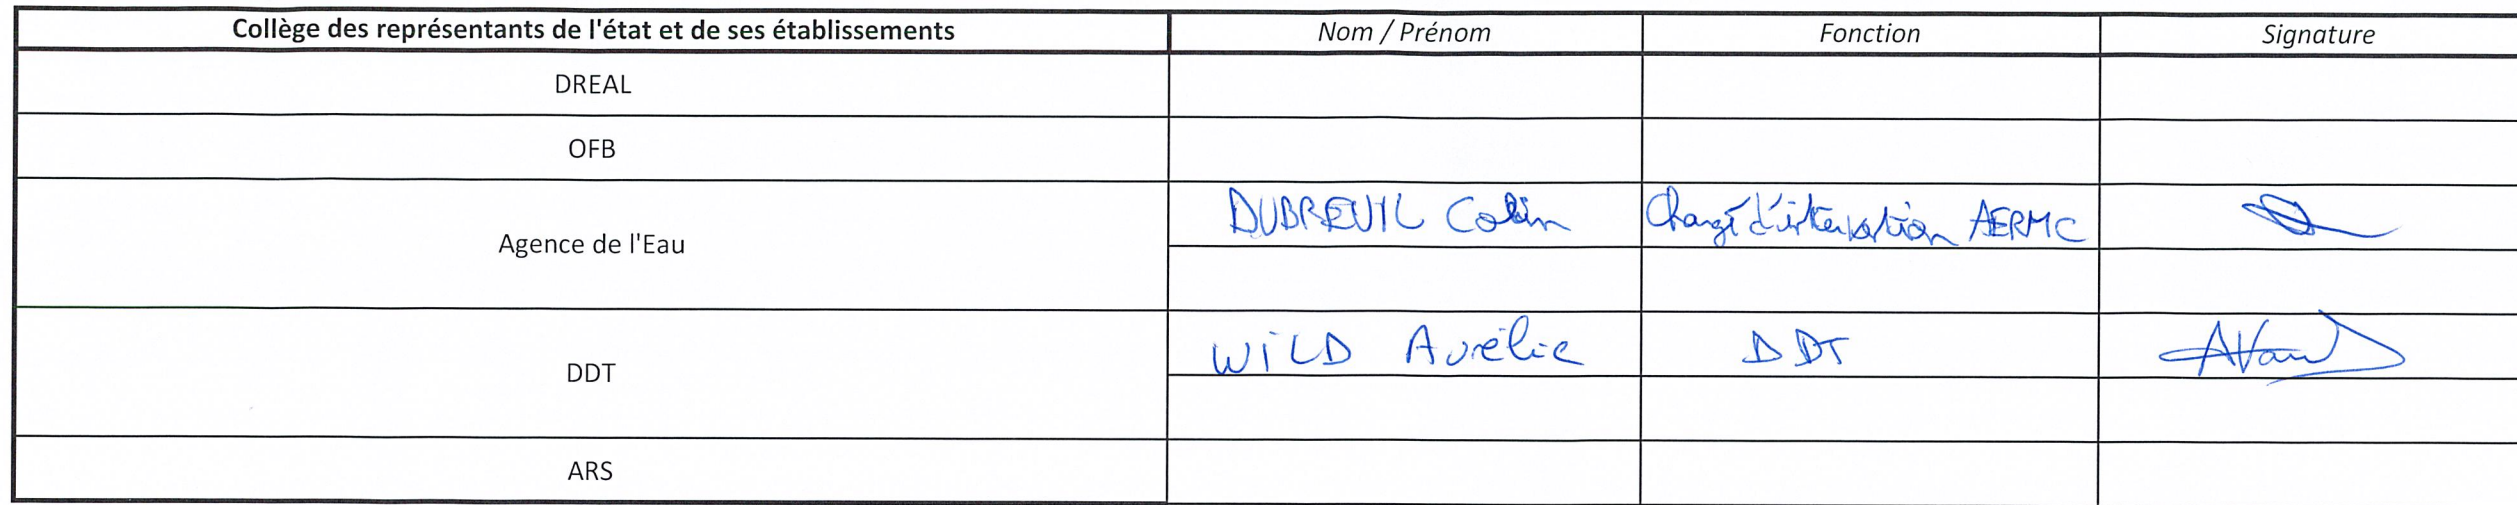 Collège des représentants de l'état et de ses établissements Nom / Prénom Fonction Signature
DREAL
OFB
Agence de l'Eau DUBREUIL Colin Chargé d'intervention AERMC
DDT WILD Aurélie DDT
ARS